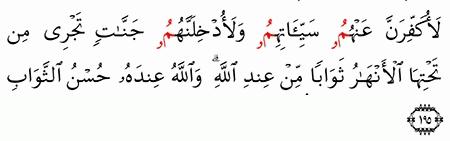 لَأُكَفِّرَنَّ عَنْهُمُۥ سَيِّـَٔاتِهِمُۥ وَلَأُدْخِلَنَّهُمُۥ جَنَّٰتٖ تَجْرِى مِن
تَحْتِهَا ٱلْأَنْهَٰرُ ثَوَابٗا مِّنْ عِندِ ٱللَّهِۗ وَٱللَّهُ عِندَهُۥ حُسْنُ ٱلثَّوَابِ
١٩٥